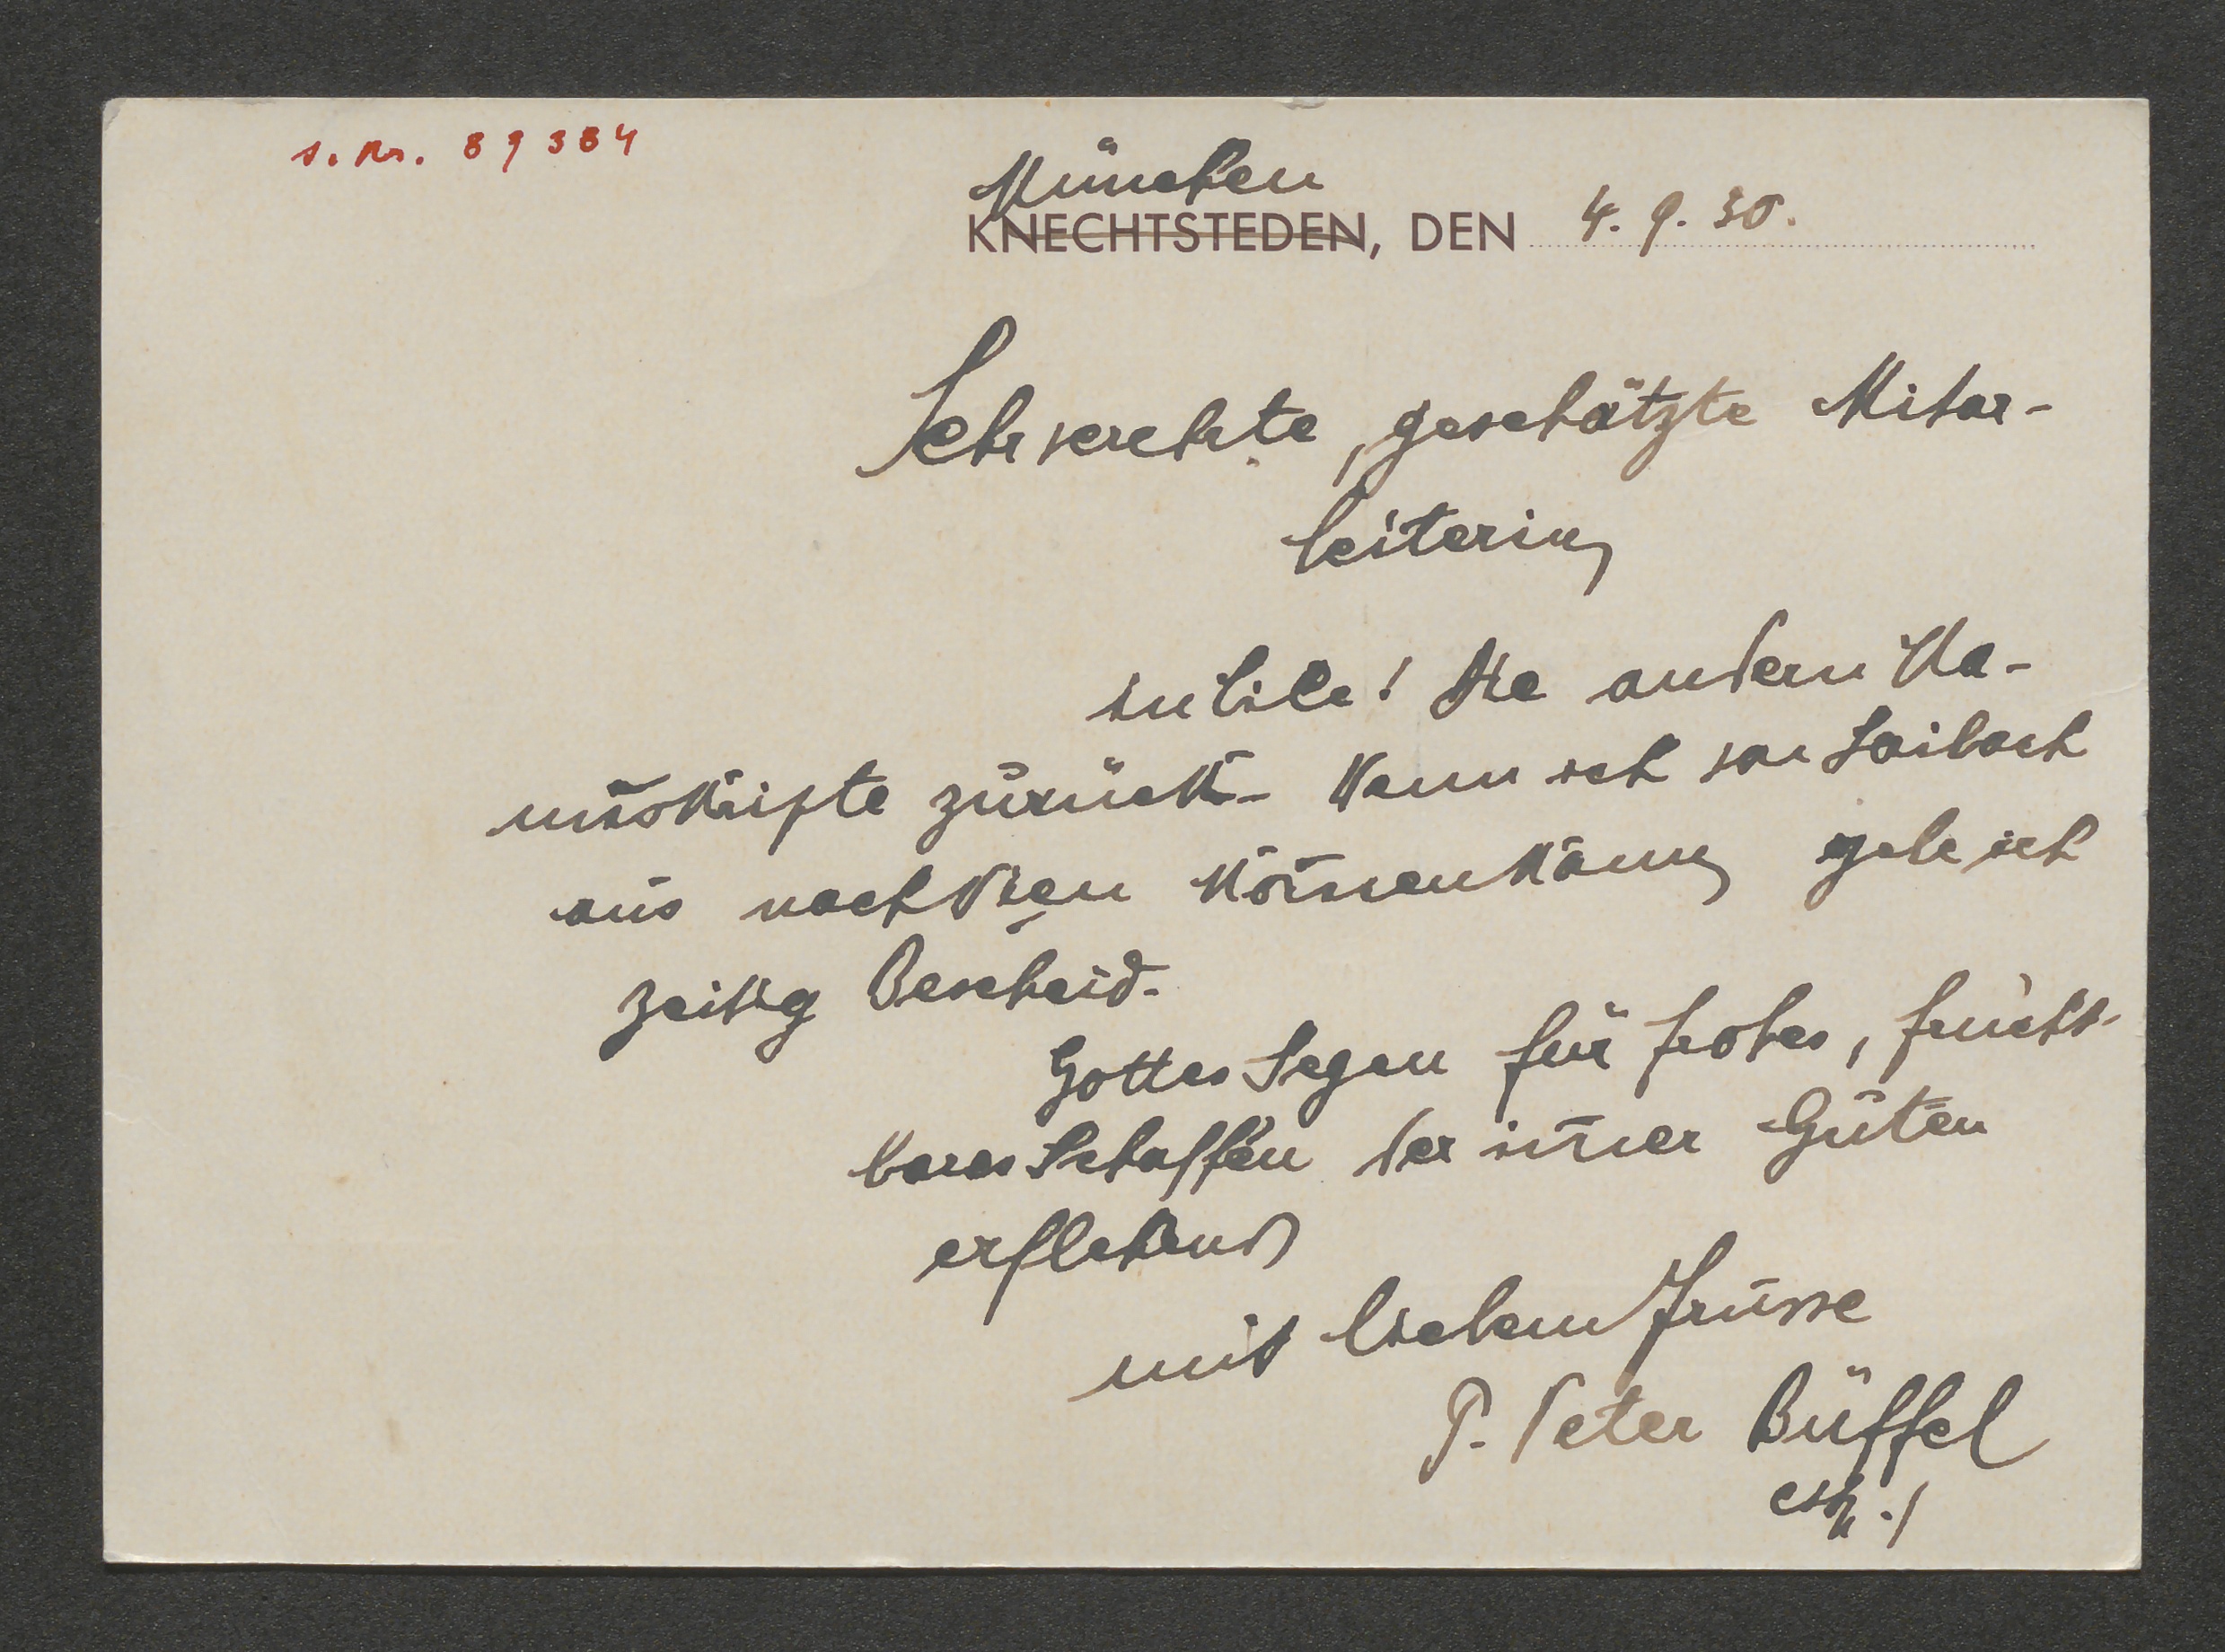 s. Nr. 89384
München
KNECHTSTEDEN, DEN 4. 9. 30.
Sehr verehrte, geschätzte Mitar-
beiterin,
in Eile! Die andern Ma-
nuskripte zurück. Wenn ich von Laibach
aus nach Wien kom̄en kann, gebe ich
zeitig Bescheid.
Gottes Segen für frohes, frucht-
bares Schaffen der im̄er Guten
erflehend
mit liebem Grusse
P. Peter Büffel